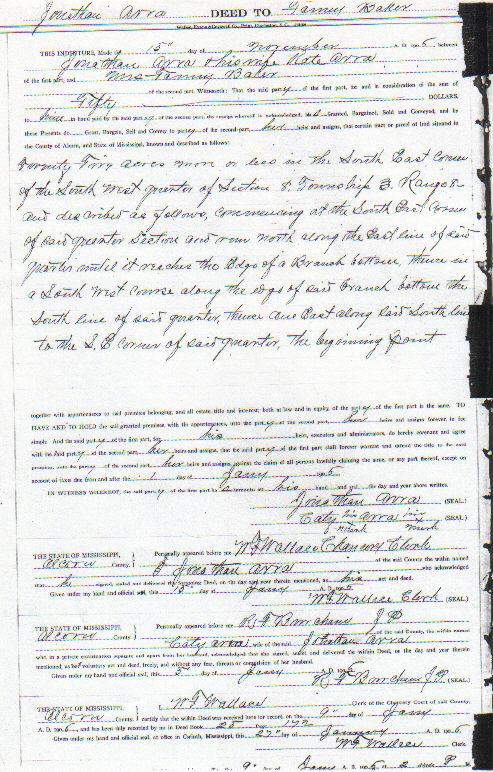 Jonathan Avra DEED TO Fanny Baker
THIS INDENTURE, Made 15" day of November A. D. 1906 between
Jonathan Avra & his wife Kate Avra
of the first part, and Mrs Fanny Baker
of the second part, Witnesseth: That the said party of the first part, for and in consideration of the sum of
Fifty DOLLARS,
to him in hand paid by the said party of the second part, the receipt whereof is acknowledged, Granted, Bargained, Sold and Conveyed, and by
these Presents do Grant, Bargain, Sell and Convey to party of the second part, her heirs and assigns, that certain tract or parcel of land situated in
the County of Alcorn, and State of Mississippi, known and described as follows:
Twenty Five acres more or less in the South East Corner
of the South West quarter of Section 8. Township 3. Range 8
and described as follows, commencing at the South East corner
of said quarter Section and run north along the East line of said
quarter until it reaches the Edge of a Branch bottom, thence in
a South West course along the edge of said branch bottom the
South line of said quarter, thence due East along said South line
to the S. E corner of said quarter, the beginning point
together with appurtenances to said premises belonging, and all estate, title and interest, both at law and in equity, of the party of the first part in the same. TO
HAVE AND TO HOLD the said granted premises, with the appurtenances, unto the party of the second part, her heirs and assigns forever, in fee
simple. And the said party of the first part, for his heirs, executors and administrators, do hereby covenant and agree
with the said party of the second part, her heirs and assigns, that the said party of the first part shall forever warrant and defend the title to the said
premises, unto the party of the second part, her heirs and assigns against the claim of all persons lawfully claiming the same, or any part thereof, except on
account of taxes due from and after the 1 day of Jany
IN WITNESS WHEREOF, the said party of the first part hereunto set his hand the day and year above written.
Jonathan Avra (SEAL)
Caty her Avra (SEAL)
mark
THE STATE OF MISSISSIPPI, Personally appeared before me W T Wallace Chancery Clerk
Alcorn County. of the said County the within named
Jonathan Avra who acknowledged
that he signed, sealed and delivered the foregoing Deed, on the day and year therein mentioned, as his act and deed.
Given under my hand and official seal, this 15" day of Jany
W T Wallace Clerk (SEAL)
THE STATE OF MISSISSIPPI, Personally appeared before me R F Burcham J P
Alcorn County of the said County, the within named
Caty Avra wife of the said Jonathan Avra
who, in a private examination separate and apart from her husband, acknowledged that she signed, sealed and delivered the within Deed, on the day and year therein
mentioned, as her voluntary act and deed, freely, and without any fear, threats or compulsion of her husband.
Given under my hand and official seal, this 5" day of Jany A. D.
R F Burcham J. P. (SEAL)
THE STATE OF MISSISSIPPI, W T Wallace Clerk of the Chancery Court of said County,
Alcorn County. I certify that the within Deed was received by me for record, on the 9" day of Jany
A. D. 1906, and has been duly recorded by me in Deed Book 25 Page
Given under my hand and official seal, at office in Corinth, Mississippi, this 27" day of January A. D. 1906
W T Wallace Clerk.